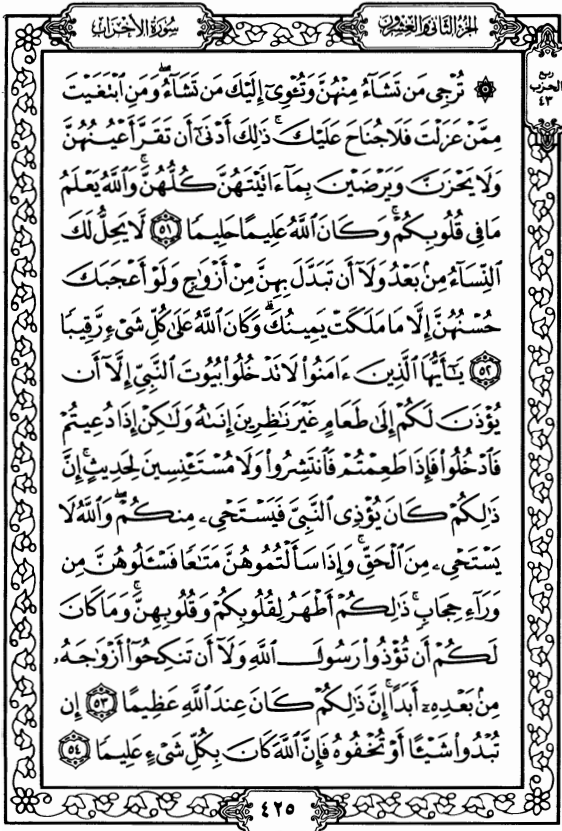 سُورَةُ الأَحْزَابِ
الجُزْءُ الثَّانِي وَالعِشْرُونَ
ربع
الحزب
٤٣
۞ تُرْجِى مَن تَشَآءُ مِنْهُنَّ وَتُـْٔوِىٓ إِلَيْكَ مَن تَشَآءُ ۖ وَمَنِ ٱبْتَغَيْتَ
مِمَّنْ عَزَلْتَ فَلَا جُنَاحَ عَلَيْكَ ۚ ذَٰلِكَ أَدْنَىٰٓ أَن تَقَرَّ أَعْيُنُهُنَّ
وَلَا يَحْزَنَّ وَيَرْضَيْنَ بِمَآ ءَاتَيْتَهُنَّ كُلُّهُنَّ ۚ وَٱللَّهُ يَعْلَمُ
مَا فِى قُلُوبِكُمْ ۚ وَكَانَ ٱللَّهُ عَلِيمًا حَلِيمًا ٥١ لَّا يَحِلُّ لَكَ
ٱلنِّسَآءُ مِنۢ بَعْدُ وَلَآ أَن تَبَدَّلَ بِهِنَّ مِنْ أَزْوَٰجٍ وَلَوْ أَعْجَبَكَ
حُسْنُهُنَّ إِلَّا مَا مَلَكَتْ يَمِينُكَ ۗ وَكَانَ ٱللَّهُ عَلَىٰ كُلِّ شَىْءٍ رَّقِيبًا
٥٢ يَـٰٓأَيُّهَا ٱلَّذِينَ ءَامَنُوا۟ لَا تَدْخُلُوا۟ بُيُوتَ ٱلنَّبِىِّ إِلَّآ أَن
يُؤْذَنَ لَكُمْ إِلَىٰ طَعَامٍ غَيْرَ نَـٰظِرِينَ إِنَىٰهُ وَلَـٰكِنْ إِذَا دُعِيتُمْ
فَٱدْخُلُوا۟ فَإِذَا طَعِمْتُمْ فَٱنتَشِرُوا۟ وَلَا مُسْتَـْٔنِسِينَ لِحَدِيثٍ ۚ إِنَّ
ذَٰلِكُمْ كَانَ يُؤْذِى ٱلنَّبِىَّ فَيَسْتَحْىِۦ مِنكُمْ ۖ وَٱللَّهُ لَا
يَسْتَحْىِۦ مِنَ ٱلْحَقِّ ۚ وَإِذَا سَأَلْتُمُوهُنَّ مَتَـٰعًا فَسْـَٔلُوهُنَّ مِن
وَرَآءِ حِجَابٍ ۚ ذَٰلِكُمْ أَطْهَرُ لِقُلُوبِكُمْ وَقُلُوبِهِنَّ ۚ وَمَا كَانَ
لَكُمْ أَن تُؤْذُوا۟ رَسُولَ ٱللَّهِ وَلَآ أَن تَنكِحُوٓا۟ أَزْوَٰجَهُۥ
مِنۢ بَعْدِهِۦٓ أَبَدًا ۚ إِنَّ ذَٰلِكُمْ كَانَ عِندَ ٱللَّهِ عَظِيمًا ٥٣ إِن
تُبْدُوا۟ شَيْـًٔا أَوْ تُخْفُوهُ فَإِنَّ ٱللَّهَ كَانَ بِكُلِّ شَىْءٍ عَلِيمًا ٥٤
٤٢٥